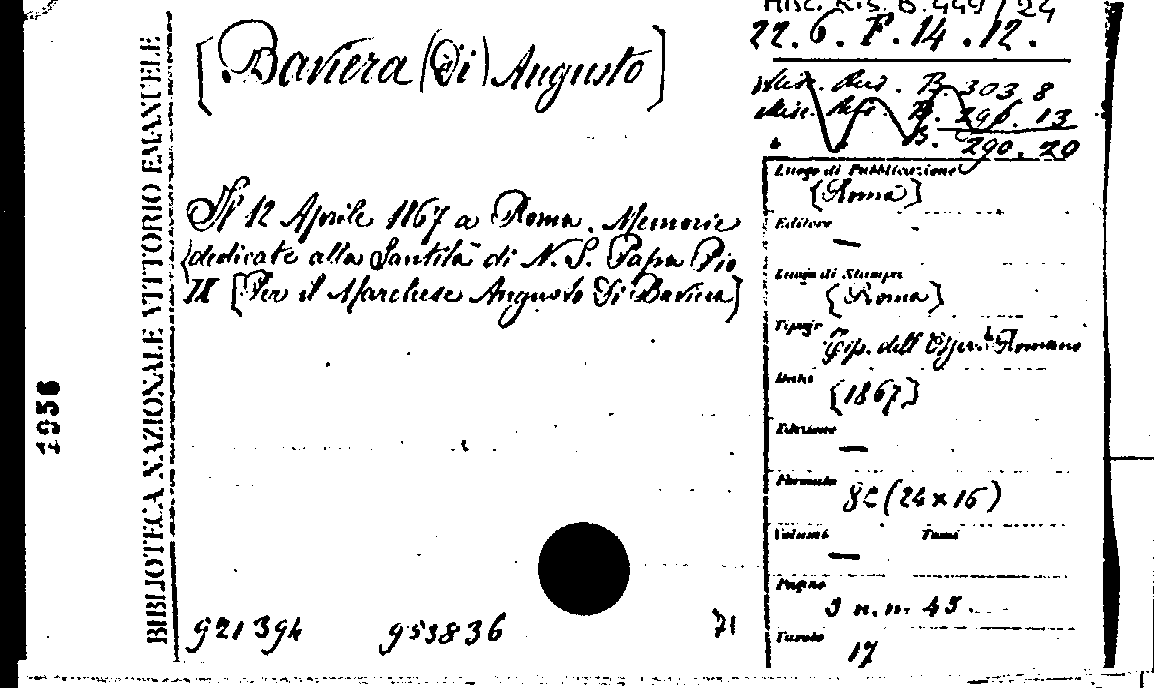 Misc. Ris. B. 449/24
22. 6. F. 14. 12.
[Baviera (Di) Augusto]
Misc. Ris. B. 303 8
Misc. Ris. B. 296. 13
B. 290. 20
Il 12 Aprile 1867 a Roma. Memorie
dedicate alla Santità di N. S. Papa Pio
IX [Per il Marchese Augusto Di Baviera]
Luogo di Pubblicazione
[Roma]
Editore
—
Luogo di Stampa
[Roma]
Tipogr.
Tip. dell' Osser. Romano
Data
[1867]
Edizione
—
Formato
8º (24x16)
Volumi Tomi
—
Pagine
n. n. 45.
Tavole
17
921394 953836 71
BIBLIOTECA NAZIONALE VITTORIO EMANUELE
1956